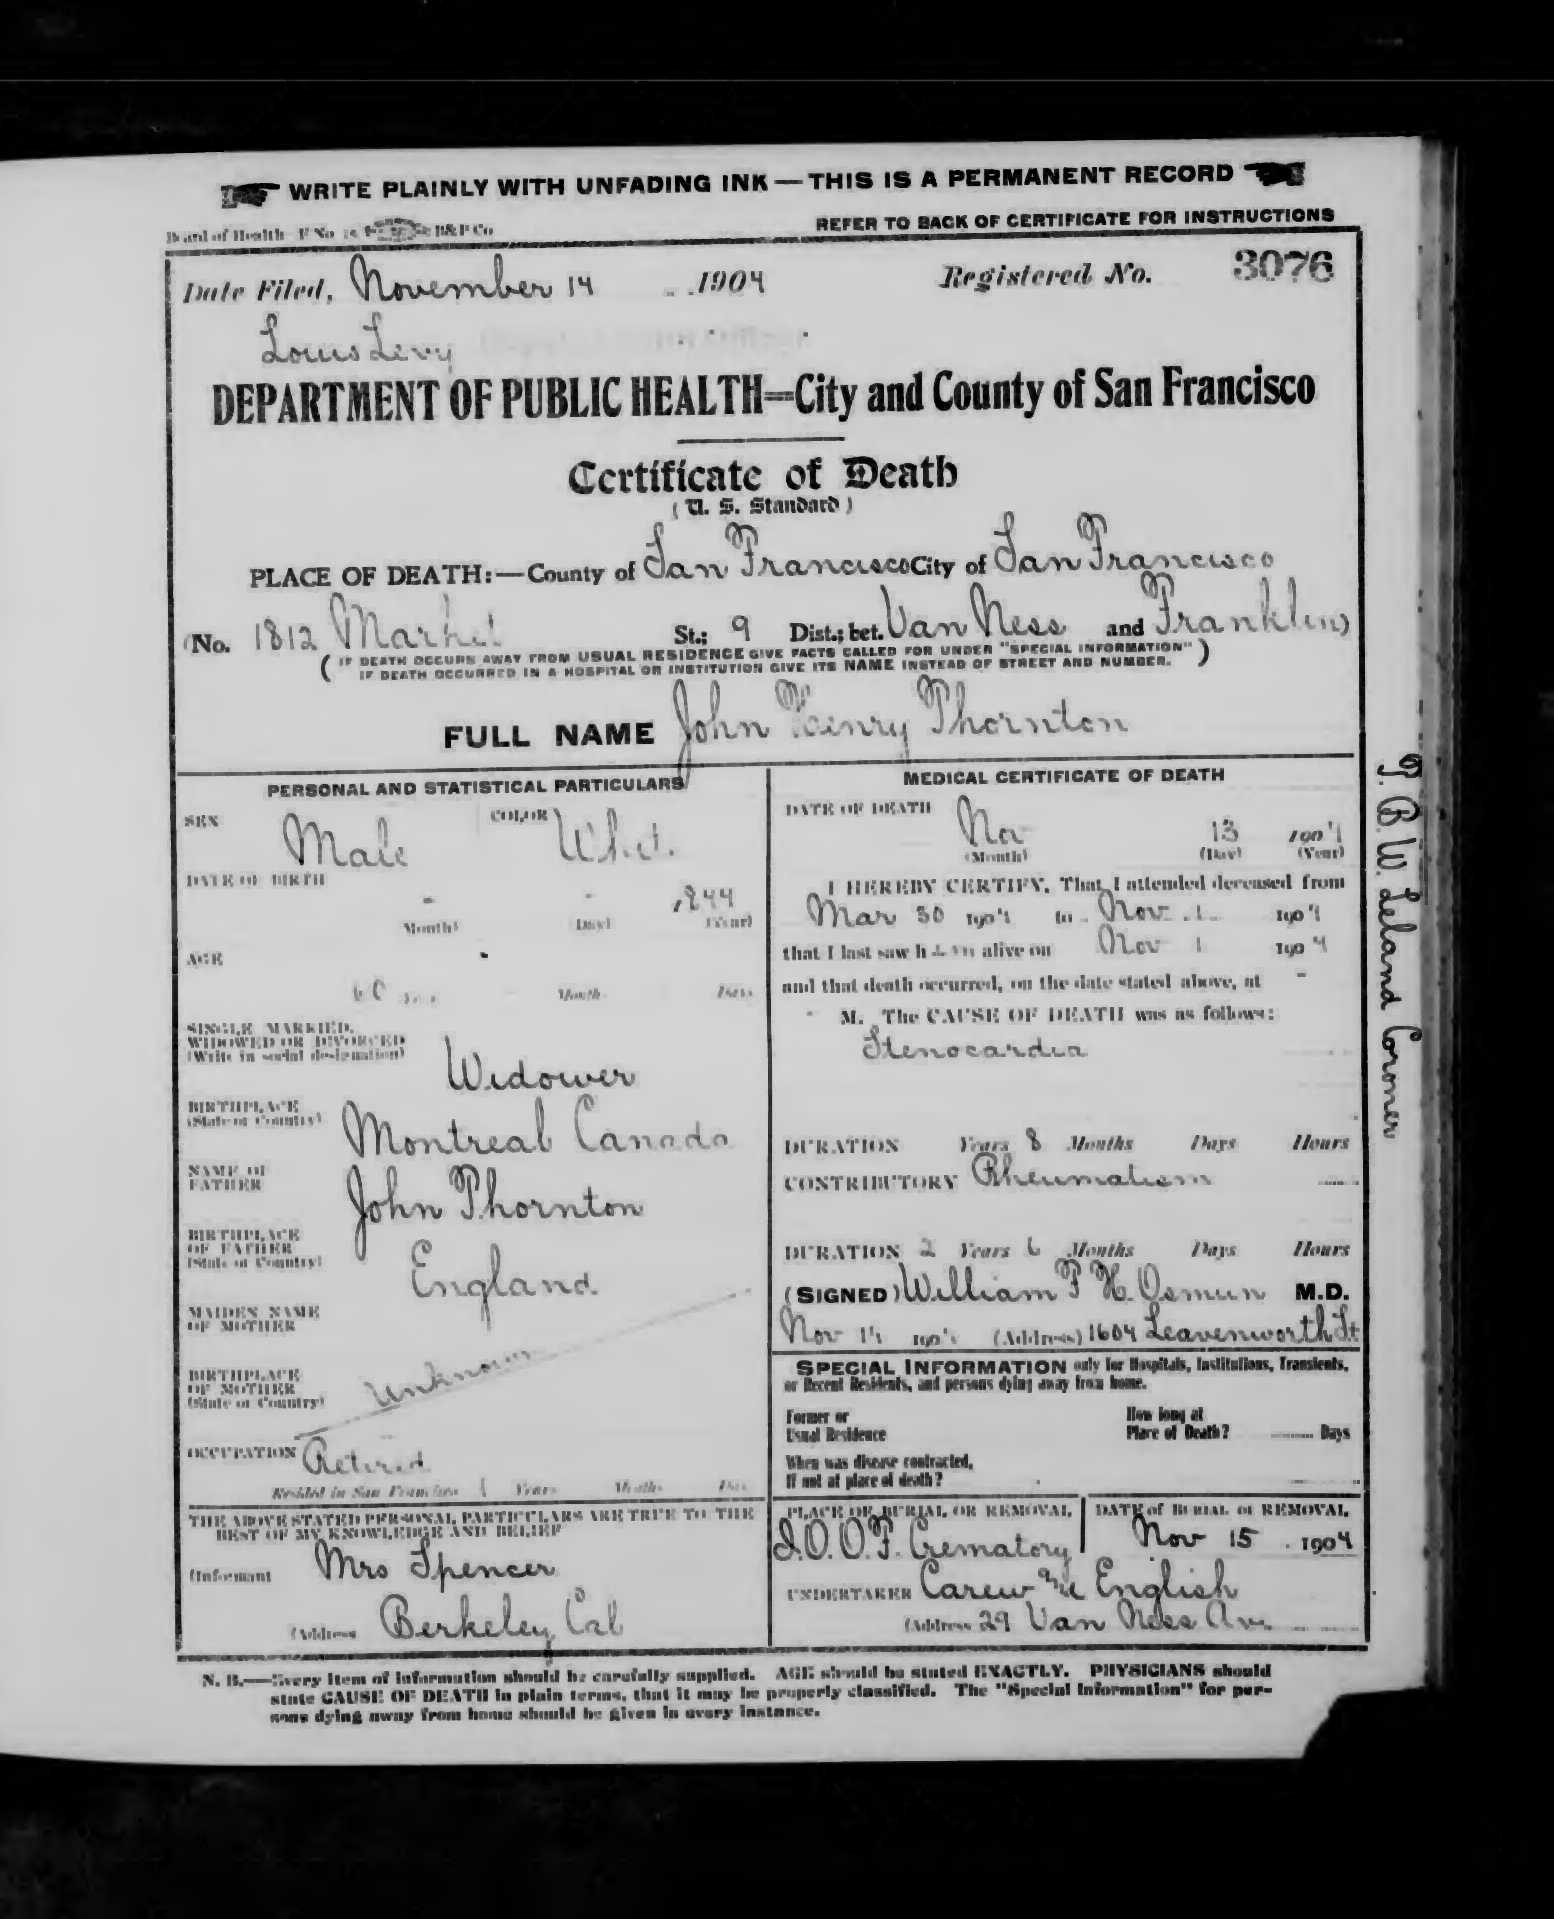 WRITE PLAINLY WITH UNFADING INK — THIS IS A PERMANENT RECORD
Board of Health F No B&P Co
REFER TO BACK OF CERTIFICATE FOR INSTRUCTIONS
Date Filed, November 14 1904 Registered No. 3076
Louis Levy
DEPARTMENT OF PUBLIC HEALTH=City and County of San Francisco
Certificate of Death
(U. S. Standard)
PLACE OF DEATH:—County of San Francisco City of San Francisco
(No. 1812 Market St.; 9 Dist.; bet. Van Ness and Franklin)
(IF DEATH OCCURS AWAY FROM USUAL RESIDENCE GIVE FACTS CALLED FOR UNDER "SPECIAL INFORMATION"
IF DEATH OCCURRED IN A HOSPITAL OR INSTITUTION GIVE ITS NAME INSTEAD OF STREET AND NUMBER.)
FULL NAME John Henry Thornton
PERSONAL AND STATISTICAL PARTICULARS
SEX Male COLOR White
DATE OF BIRTH - - 1844
(Month) (Day) (Year)
AGE
60 Years Months Days
SINGLE, MARRIED,
WIDOWED OR DIVORCED
(Write in social designation)
Widower
BIRTHPLACE
(State or Country)
Montreal Canada
NAME OF
FATHER
John Thornton
BIRTHPLACE
OF FATHER
(State or Country)
England
MAIDEN NAME
OF MOTHER
BIRTHPLACE
OF MOTHER
(State or Country)
Unknown
OCCUPATION Retired
Resided in San Francisco Years Months Days
THE ABOVE STATED PERSONAL PARTICULARS ARE TRUE TO THE
BEST OF MY KNOWLEDGE AND BELIEF
(Informant Mrs Spencer
(Address Berkeley Cal
MEDICAL CERTIFICATE OF DEATH
DATE OF DEATH
Nov 13 1904
(Month) (Day) (Year)
I HEREBY CERTIFY, That I attended deceased from
Mar 30 1904 to Nov 1 1904
that I last saw him alive on Nov 1 1904
and that death occurred, on the date stated above, at -
M. The CAUSE OF DEATH was as follows:
Stenocardia
DURATION Years 8 Months Days Hours
CONTRIBUTORY Rheumatism
DURATION 2 Years 6 Months Days Hours
(SIGNED) William F H. Osmun M.D.
Nov 14 1904 (Address) 1604 Leavenworth St
SPECIAL INFORMATION only for Hospitals, Institutions, Transients,
or Recent Residents, and persons dying away from home.
Former or
Usual Residence
How long at
Place of Death? Days
When was disease contracted,
If not at place of death?
PLACE OF BURIAL OR REMOVAL
I.O.O.F. Crematory
DATE of BURIAL or REMOVAL
Nov 15 1904
UNDERTAKER Carew & English
(Address 29 Van Ness Ave.
T. B. W. Leland Coroner
N. B.—Every item of information should be carefully supplied. AGE should be stated EXACTLY. PHYSICIANS should
state CAUSE OF DEATH in plain terms, that it may be properly classified. The "Special Information" for per-
sons dying away from home should be given in every instance.